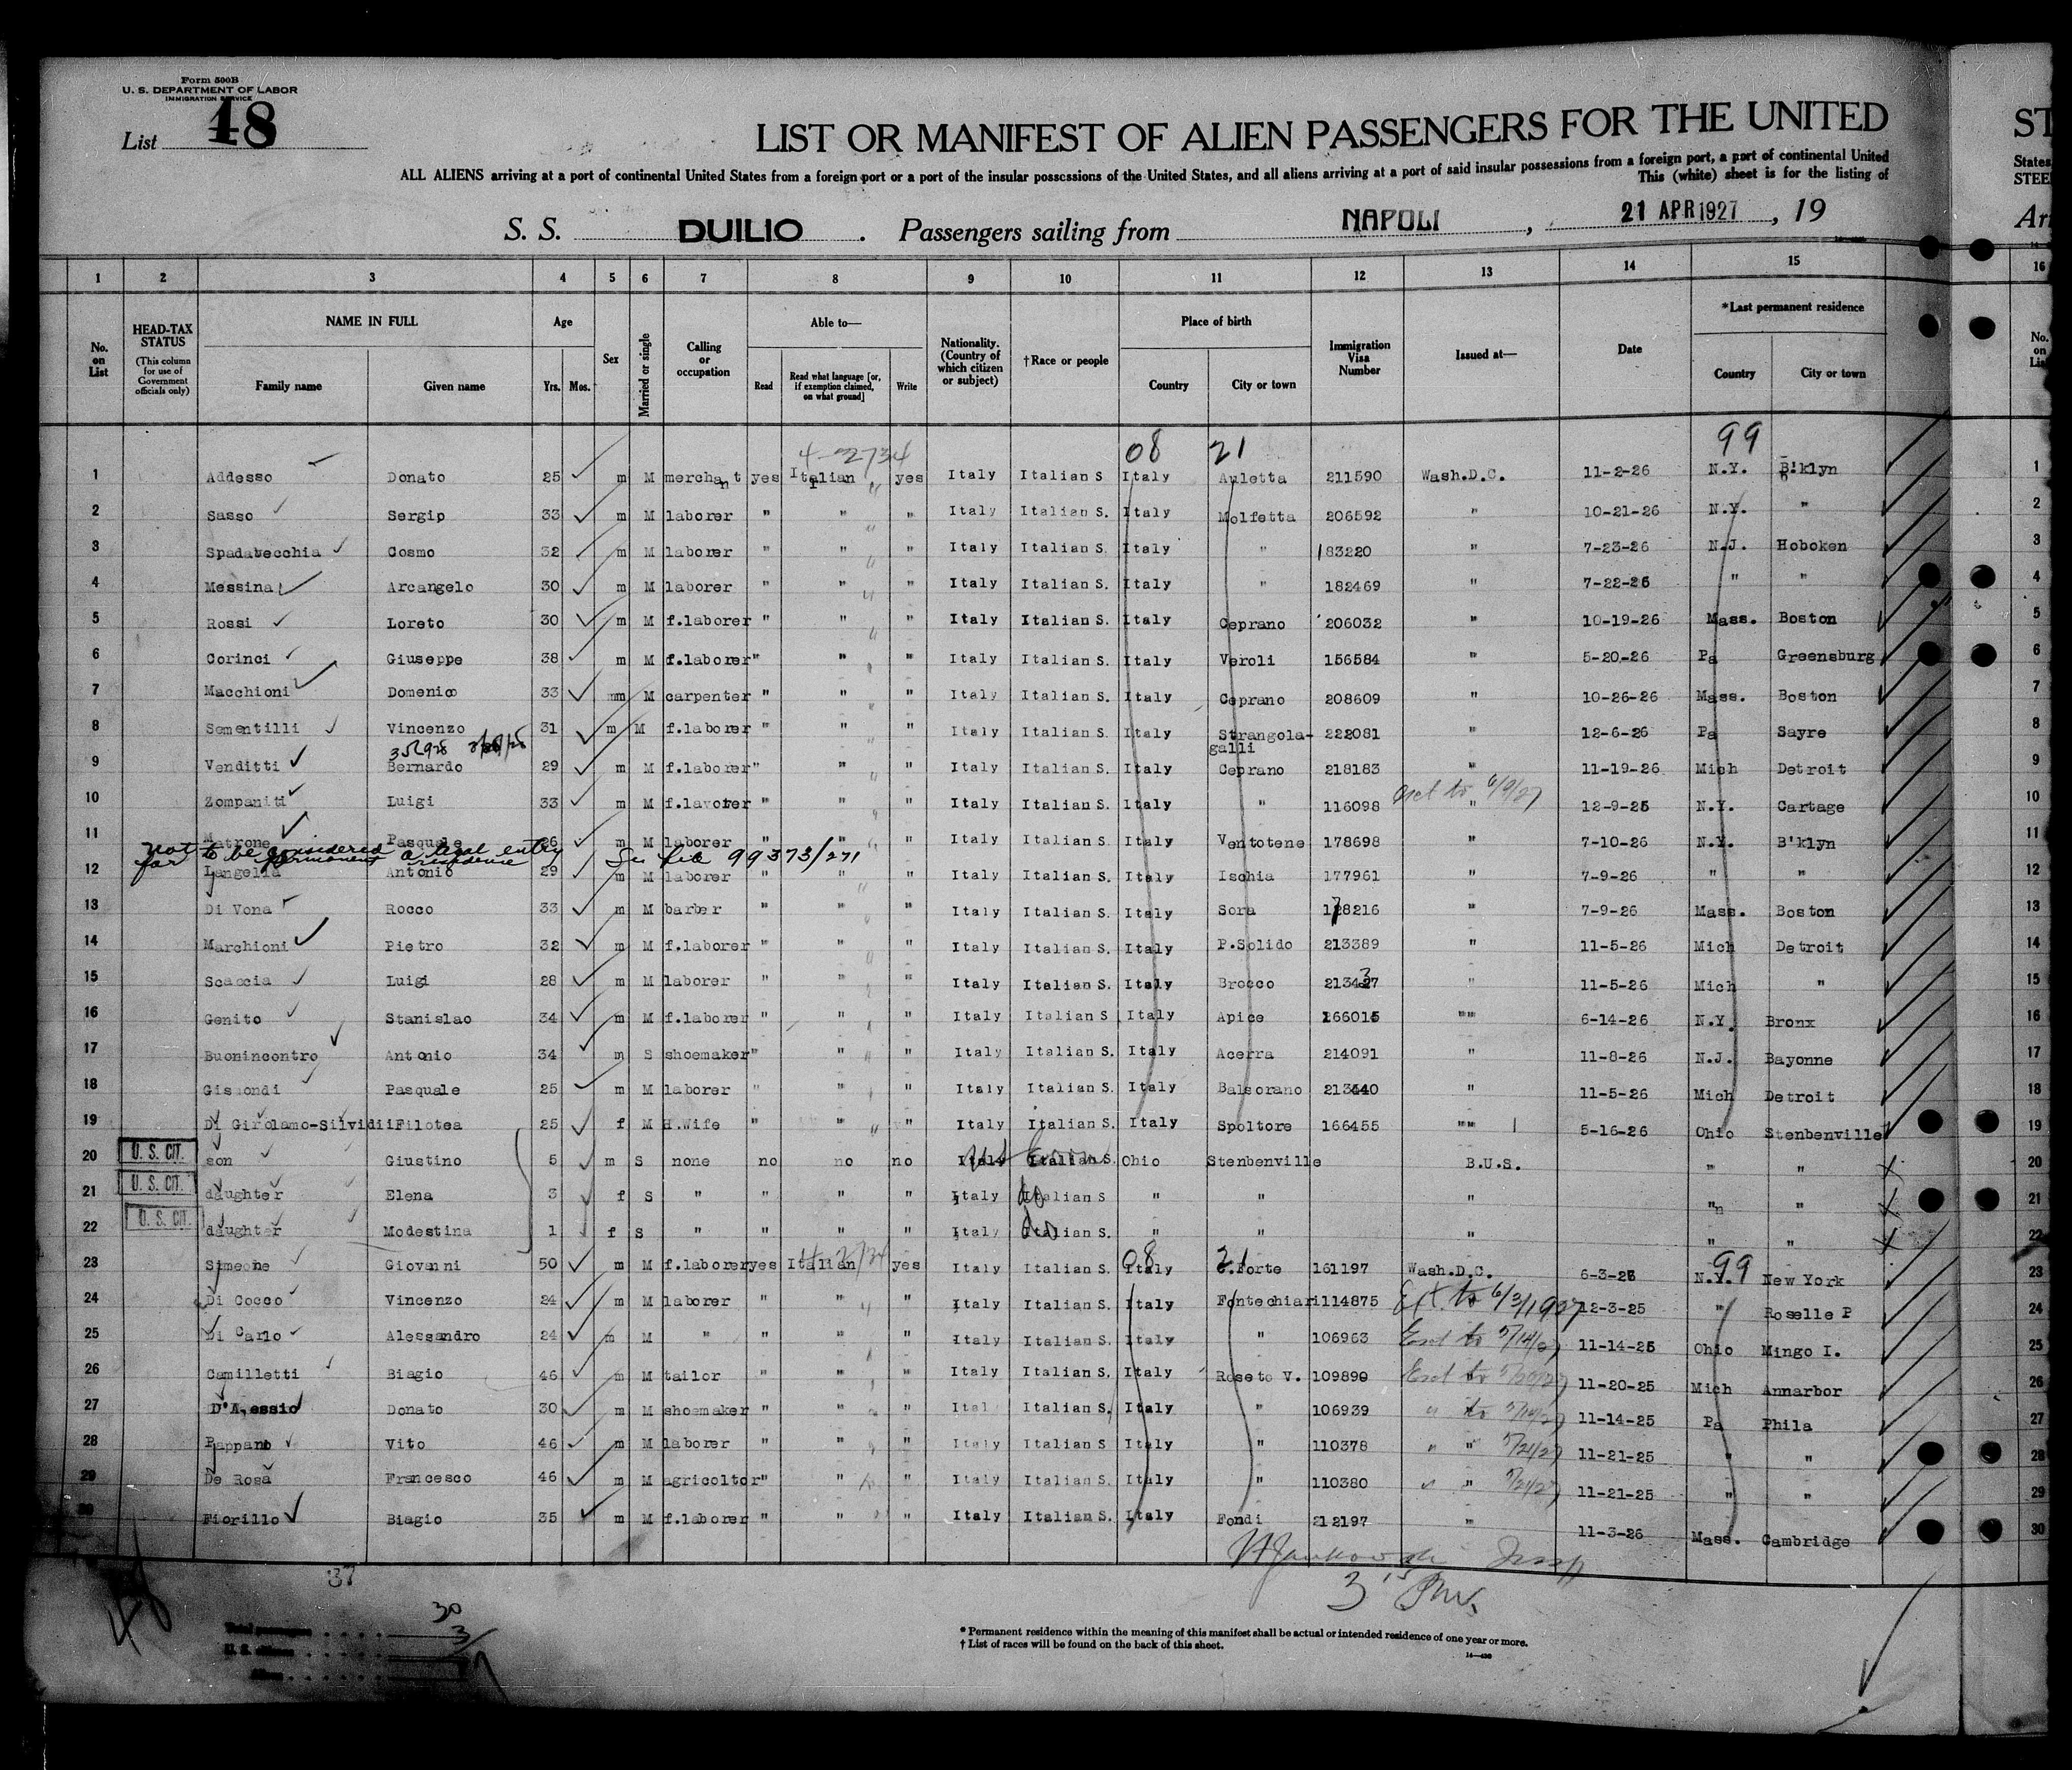 Form 500B
U. S. DEPARTMENT OF LABOR
IMMIGRATION SERVICE
List 48
LIST OR MANIFEST OF ALIEN PASSENGERS FOR THE UNITED
ST
ALL ALIENS arriving at a port of continental United States from a foreign port or a port of the insular possessions of the United States, and all aliens arriving at a port of said insular possessions from a foreign port, a port of continental United
States
This (white) sheet is for the listing of
STEE
S. S. DUILIO. Passengers sailing from NAPOLI, 21 APR 1927, 19
Arr
1 2 3 4 5 6 7 8 9 10 11 12 13 14 15 16
No. on List HEAD-TAX STATUS (This column for use of Government officials only) NAME IN FULL Family name Given name Age Yrs. Mos. Sex Married or single Calling or occupation Able to— Read Read what language [or, if exemption claimed, on what ground] Write Nationality. (Country of which citizen or subject) †Race or people Place of birth Country City or town Immigration Visa Number Issued at— Date *Last permanent residence Country City or town No. on List
4-2734 08 21 99
1 Addesso Donato 25 m M merchant yes Italian yes Italy Italian S Italy Auletta 211590 Wash.D.C. 11-2-26 N.Y. B'klyn 1
2 Sasso Sergip 33 m M laborer " " " Italy Italian S. Italy Molfetta 206592 " 10-21-26 N.Y. " 2
3 Spadavecchia Cosmo 32 m M laborer " " " Italy Italian S. Italy " 183220 " 7-23-26 N.J. Hoboken 3
4 Messina Arcangelo 30 m M laborer " " " Italy Italian S. Italy " 182469 " 7-22-26 " " 4
5 Rossi Loreto 30 m M f.laborer " " " Italy Italian S. Italy Ceprano 206032 " 10-19-26 Mass. Boston 5
6 Corinci Giuseppe 38 m M f.laborer " " " Italy Italian S. Italy Veroli 156584 " 5-20-26 Pa Greensburg 6
7 Macchioni Domenico 33 mm M carpenter " " " Italy Italian S. Italy Ceprano 208609 " 10-26-26 Mass. Boston 7
8 Sementilli Vincenzo 31 m M f.laborer " " " Italy Italian S. Italy Strangola-galli 222081 " 12-6-26 Pa Sayre 8
9 Venditti Bernardo 29 m M f.laborer " " " Italy Italian S. Italy Ceprano 218183 " 11-19-26 Mich Detroit 9
10 Zompaniti Luigi 33 m M f.lavorer " " " Italy Italian S. Italy " 116098 " 12-9-25 N.Y. Cartage 10
11 Matrone Pasquale 26 m M laborer " " " Italy Italian S. Italy Ventotene 178698 " 7-10-26 N.Y. B'klyn 11
not to be considered a legal entry
for permanent residence See file 99373/271
12 Langella Antonio 29 m M laborer " " " Italy Italian S. Italy Ischia 177961 " 7-9-26 " " 12
13 Di Vona Rocco 33 m M barber " " " Italy Italian S. Italy Sora 178216 " 7-9-26 Mass. Boston 13
14 Marchioni Pietro 32 m M f.laborer " " " Italy Italian S. Italy P.Solido 213389 " 11-5-26 Mich Detroit 14
15 Scaccia Luigi 28 m M laborer " " " Italy Italian S. Italy Brocco 213437 " 11-5-26 Mich " 15
16 Genito Stanislao 34 m M f.laborer " " " Italy Italian S. Italy Apice 166015 "" 6-14-26 N.Y. Bronx 16
17 Buonincontro Antonio 34 m S shoemaker " " " Italy Italian S. Italy Acerra 214091 " 11-8-26 N.J. Bayonne 17
18 Gismondi Pasquale 25 m M laborer " " " Italy Italian S. Italy Balsorano 213440 " 11-5-26 Mich Detroit 18
19 Di Girolamo-Silvidii Filotea 25 f M H.Wife " " " Italy Italian S. Italy Spoltore 166455 "" 5-16-26 Ohio Stenbenville 19
20 U. S. CIT. son Giustino 5 m S none no no no Italy Italian S. Ohio Stenbenville B.U.S. " " 20
21 U. S. CIT. daughter Elena 3 f S " " " " Italy Italian S " " " " " 21
22 U. S. CIT. daughter Modestina 1 f S " " " " Italy Italian S. " " " " " 22
08 21 99
23 Simeone Giovanni 50 m M f.laborer yes Italian yes Italy Italian S. Italy C.Forte 161197 Wash.D.C. 6-3-26 N.Y. New York 23
24 Di Cocco Vincenzo 24 m M laborer " " " Italy Italian S. Italy Fontechiari 114875 Ext. to 6/3/1927 12-3-25 " Roselle P 24
25 Di Carlo Alessandro 24 m M " " " " Italy Italian S. Italy " 106963 Ext to 5/14/27 11-14-25 Ohio Mingo I. 25
26 Camilletti Biagio 46 m M tailor " " " Italy Italian S. Italy Roseto V. 109890 Ext to 5/20/27 11-20-25 Mich Annarbor 26
27 D'Alessio Donato 30 m M shoemaker " " " Italy Italian S. Italy " 106939 " to 5/14/27 11-14-25 Pa Phila 27
28 Pappano Vito 46 m M laborer " " " Italy Italian S Italy " 110378 " " 5/21/27 11-21-25 " " 28
29 De Rosa Francesco 46 m M agricoltor " " " Italy Italian S. Italy " 110380 " " 5/21/27 11-21-25 " " 29
30 Fiorillo Biagio 35 m M f.laborer " " " Italy Italian S. Italy Fondi 212197 " 11-3-26 Mass. Cambridge 30
37
Total passengers . . . . 30
U. S. citizens . . . . . 3
Aliens . . . . . .
* Permanent residence within the meaning of this manifest shall be actual or intended residence of one year or more.
† List of races will be found on the back of this sheet.